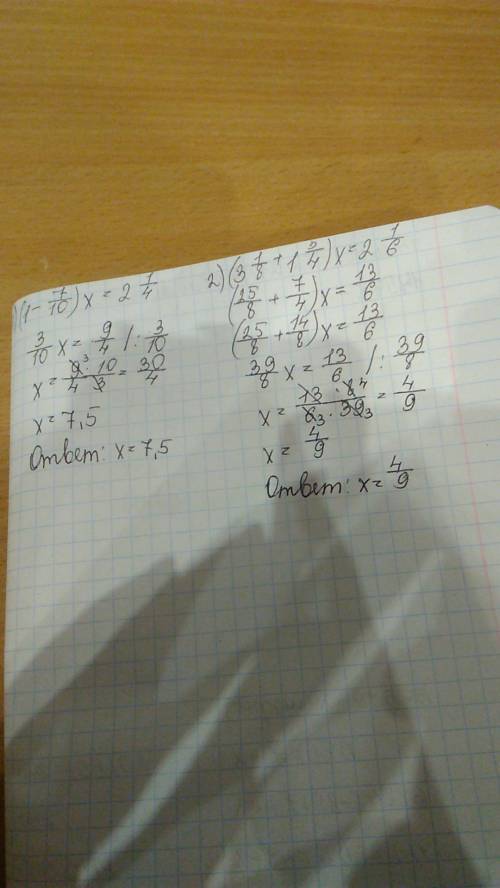 1) (1 - 7/10) x = 2 1/4
3/10 x = 9/4 /: 3/10
x = 9 3 · 10 / 4 · 3 = 30/4
x = 7,5
Ответ: x = 7,5
2) (3 1/8 + 1 3/4) x = 2 1/6
(25/8 + 7/4) x = 13/6
(25/8 + 14/8) x = 13/6
39/8 x = 13/6 /: 39/8
x = 13 · 8 4 / 6 3 · 39 3 = 4/9
x = 4/9
Ответ: x = 4/9